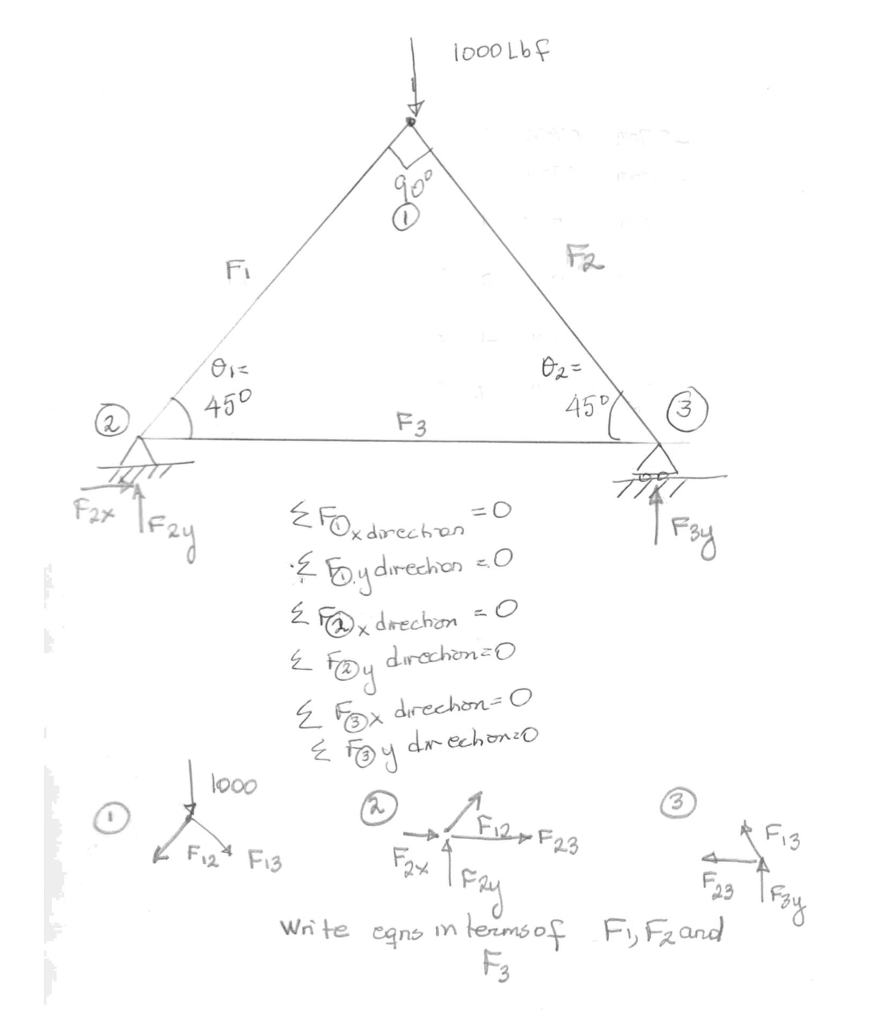 1000 Lbf
90°
①
F1
F2
θ1=
45°
θ2=
45°
②
③
F3
F2x
F2y
F3y
Σ F① x direction = 0
Σ F① y direction = 0
Σ F② x direction = 0
Σ F② y direction = 0
Σ F③ x direction = 0
Σ F③ y direction = 0
①
1000
F12
F13
②
F12
F23
F2x
F2y
③
F13
F23
F3y
Write eqns in terms of F1, F2 and
F3